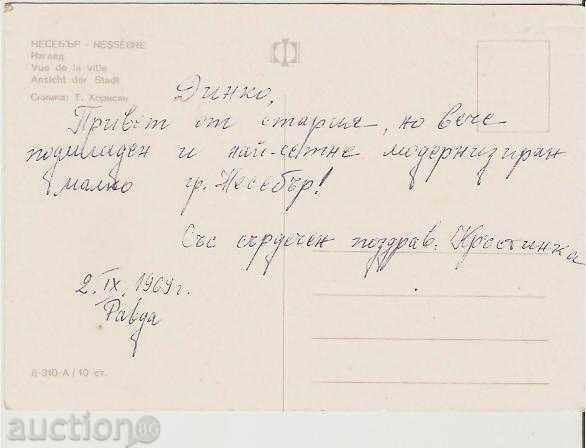 НЕСЕБЪР - NESSÈBRE
Изглед
Vue de la ville
Ansicht der Stadt
Снимка: Т. Хорисян
Динко,
Привет от стария, но вече
подмладен и най-сетне модернизиран
малко гр. Несебър!
Със сърдечен поздрав: Кростинка
2. IX. 1969 г.
Равда
Д-310-А / 10 ст.
auction.bg